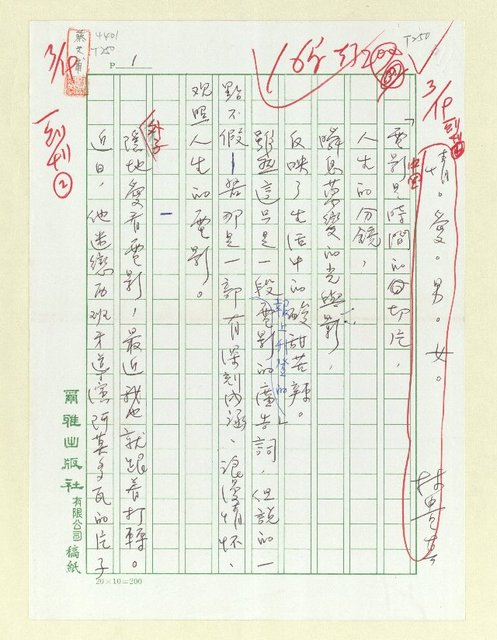 情。愛。男。女。
「電影是時間的切片，
人生的分鏡，
瞬息萬變的光與影，
反映了生活中的酸甜苦辣。」
雖然這只是一段報上刊登的電影的廣告詞，但說的一
點不假！若那是一部有深刻內涵、浪漫情懷、
觀照人生的電影。
隱地愛看電影，最近我也就跟着打轉。
近日，他迷戀西班牙導演阿莫多瓦的片子
爾雅出版社有限公司稿紙
20×10=200
P 1
4401
T250
T250
3/19
3/19